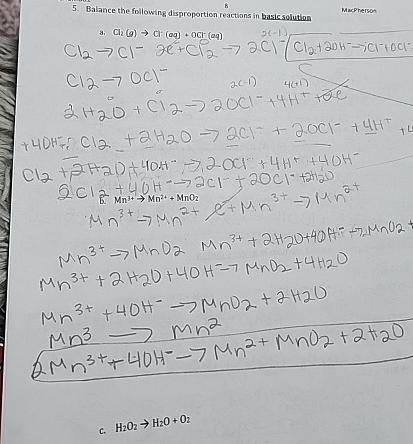 8
MacPherson
5. Balance the following disproportion reactions in basic solution
a. Cl₂ (g) → Cl⁻ (aq) + OCl⁻ (aq)
2(-1)
Cl2 → Cl⁻ 2e⁻ + Cl2 → 2Cl⁻ Cl2 + 2OH⁻ → Cl⁻ + OCl⁻
Cl2 → OCl⁻
2(-1) 4(+1)
2H2O + Cl2 → 2OCl⁻ + 4H⁺ + 2e
Cl2 + 2H2O → 2Cl⁻ + 2OCl⁻ + 4H⁺
Cl2 + 2H2O + 4OH⁻ → 2OCl⁻ + 4H⁺ + 4OH⁻
2Cl2 + 4OH⁻ → 2Cl⁻ + 2OCl⁻ + 2H2O
B. Mn³⁺ → Mn²⁺ + MnO₂
Mn³⁺ → Mn²⁺ e⁻ + Mn³⁺ → Mn²⁺
Mn³⁺ → MnO2 Mn³⁺ + 2H2O + 4OH⁻ → MnO2 +
Mn³⁺ + 2H2O + 4OH⁻ → MnO2 + 4H2O
Mn³⁺ + 4OH⁻ → MnO2 + 2H2O
Mn³ → Mn²
2Mn³⁺ + 4OH⁻ → Mn²⁺ + MnO2 + 2H2O
c. H₂O₂ → H₂O + O₂